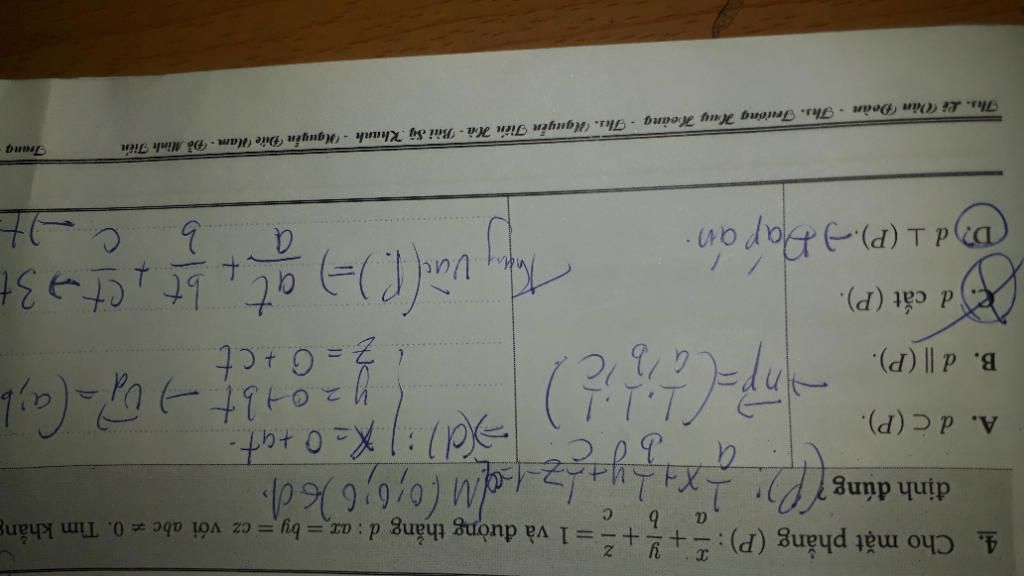 4. Cho mặt phẳng (P): x/a + y/b + z/c = 1 và đường thẳng d : ax = by = cz với abc ≠ 0. Tìm khẳng
định đúng?
(P): 1/a x + 1/b y + 1/c z - 1 = 0
M(0;0;0) ∈ d.
A. d ⊂ (P).
B. d || (P).
C. d cắt (P).
D. d ⊥ (P). → Đáp án.
→ np = (1/a; 1/b; 1/c)
=> (d): { x = 0 + at.
y = 0 + bt → Ud = (a; b
z = 0 + ct
Thay vào (P) => at/a + bt/b + ct/c → 3t
→ t
Ths. Lê Văn Đoàn - Ths. Trương Huy Hoàng - Ths. Nguyễn Tiến Hà - Bùi Sỹ Khanh - Nguyễn Đức Nam - Đỗ Minh Tiến
Trang